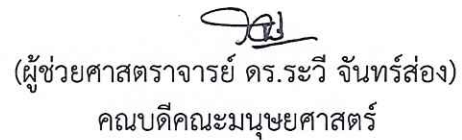 (ผู้ช่วยศาสตราจารย์ ดร.ระวี จันทร์ส่อง)
คณบดีคณะมนุษยศาสตร์